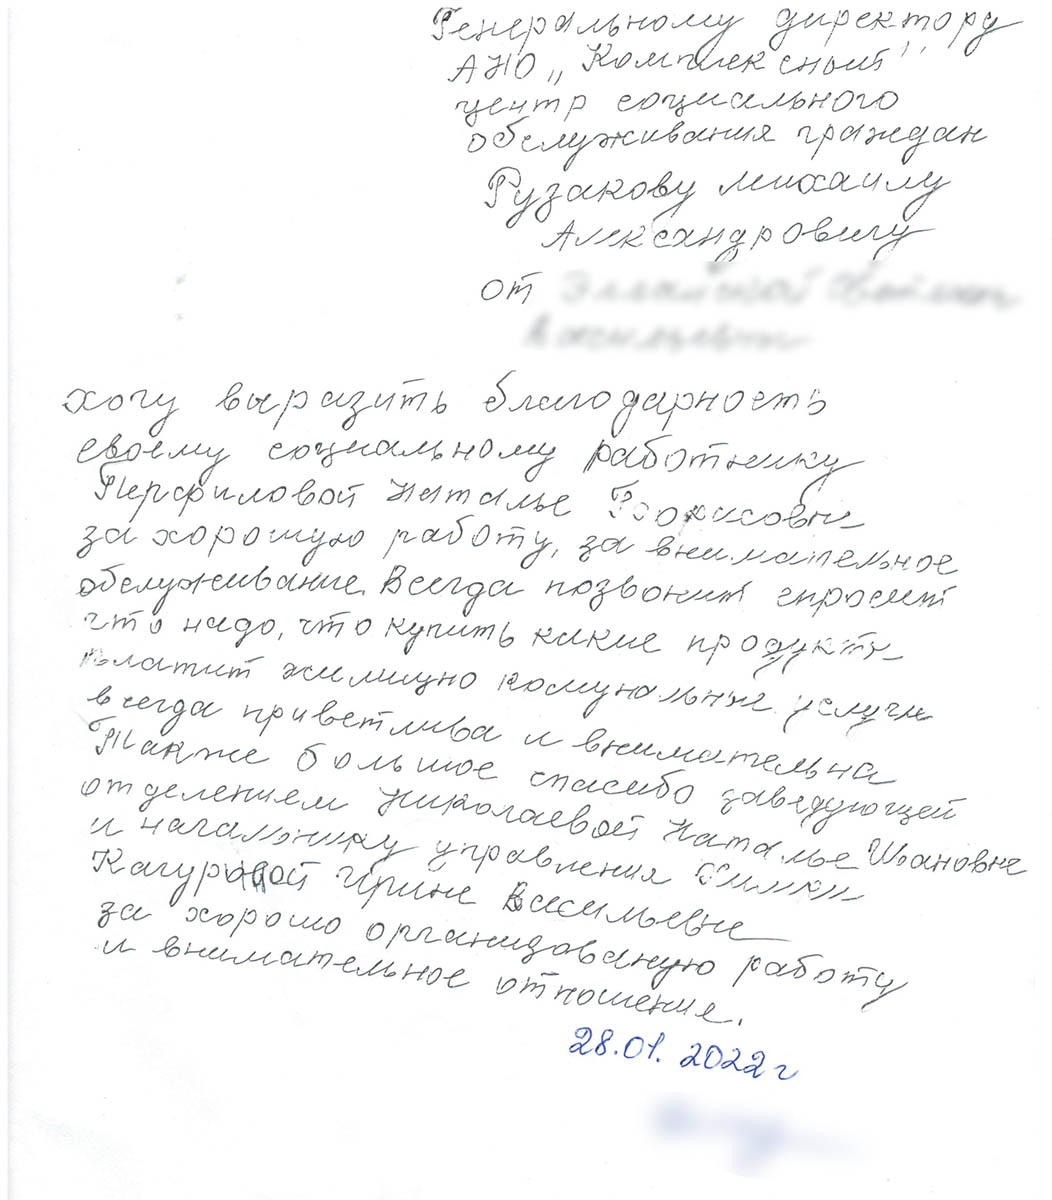 Генеральному директору
АНО „Комплексный"
центр социального
обслуживания граждан
Рузакову Михаилу
Александровичу
от
хочу выразить благодарность
своему социальному работнику
Перфиловой Наталье Борисовне
за хорошую работу, за внимательное
обслуживание. Всегда позвонит спросит
что надо, что купить какие продукты
платит жилищно комунальные услуги
всегда приветлива и внимательна
Также большое спасибо заведующей
отделением Николаевой Наталье Ивановне
и начальнику управления Химки
Кагуровой Ирине Васильевне
за хорошо организованую работу
и внимательное отношение.
28.01.2022 г